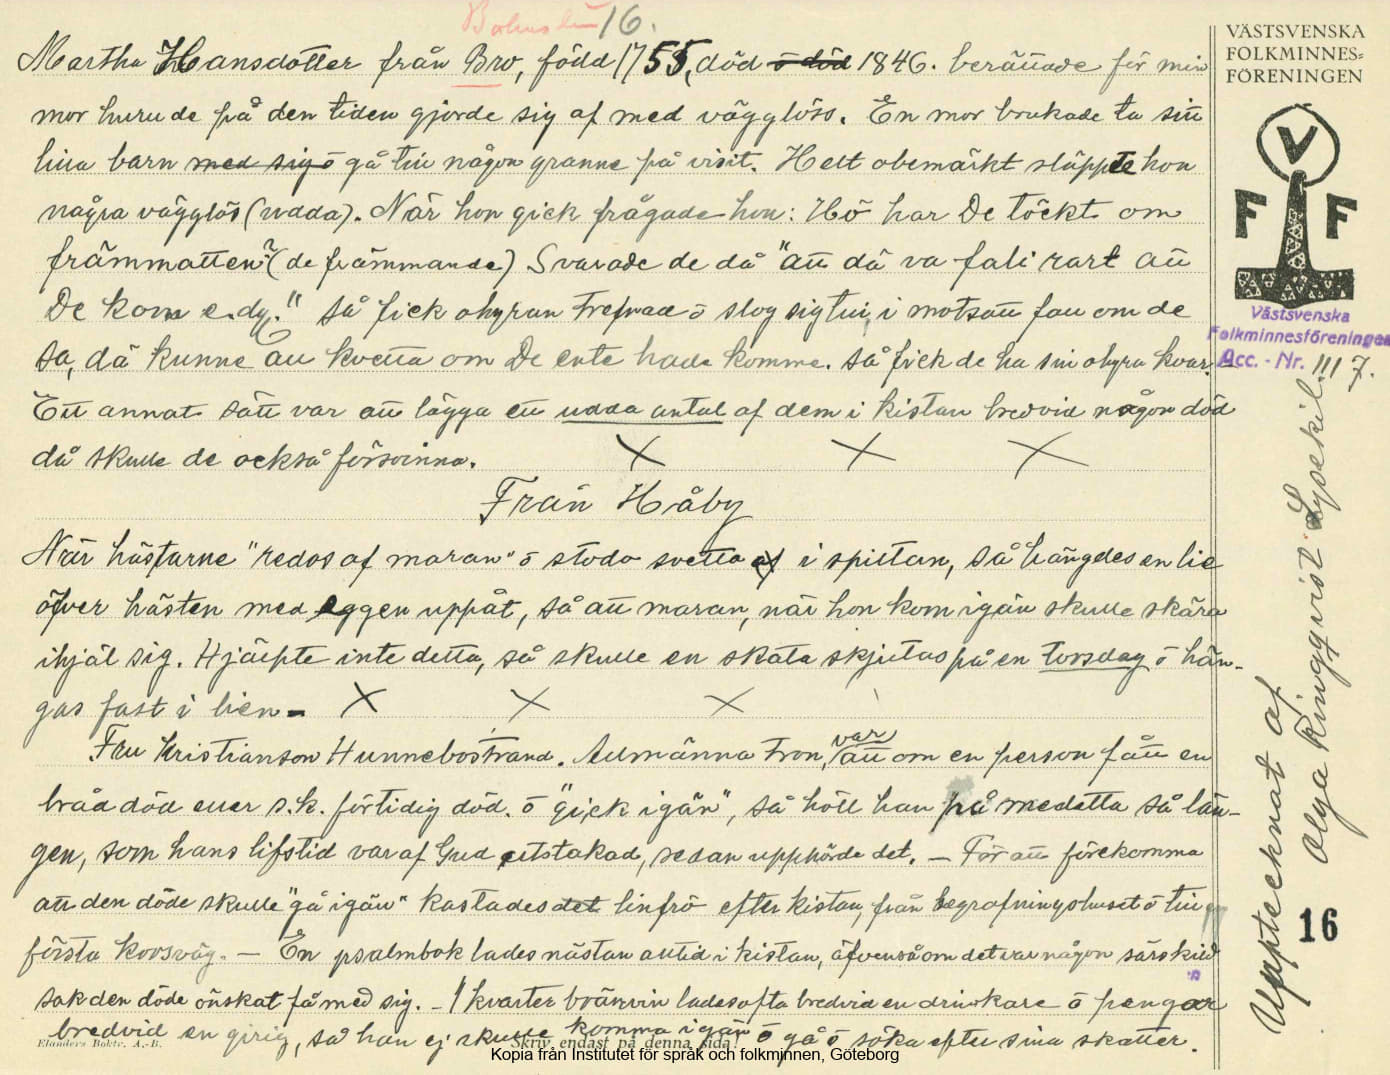 Bohuslän 16.
Martha Hansdotter från Bro, född 1755, död ö död 1846. berättade för min
mor huru de på den tiden gjorde sig af med vägglöss. En mor brukade ta sitt
lilla barn med sig ö gå till någon granne på visit. Helt obemärkt släppte hon
några vägglös (vdda). När hon gick frågade hon: Hö har De töckt om
främmatten? (de främmande) Svarade de då "att dä va fali rart att
De kom e.dy." så fick ohyran ö slog sig till, i motsatt fall om de
sa, dä kunne att kvetta om De ente hade komme. så fick de ha sin ohyra kvar.
Ett annat sätt var att lägga ett udda antal af dem i kistan bredvid någon död
då skulle de också försvinna.
Från Håby
När hästarne "redos af maran" ö stodo svetta af i spiltan, så hängdes en lie
öfver hästen med eggen uppåt, så att maran, när hon kom igän skulle skära
ihjäl sig. Hjälpte inte detta, så skulle en skata skjutas på en torsdag ö hän-
gas fast i lien.
Fru Kristianson Hunnebostrand. Allmänna tron, var att om en person fått en
bråd död eller s.k. förtidig död. ö "gick igän", så höll han på medetta så län-
gen, som hans lifstid var af Gud utstakad, sedan upphörde det. – För att förekomma
att den döde skulle "gå igän" kastades det linfrö efter kistan, från begrafningshuset ö till
första korsväg. – En psalmbok lades nästan alltid i kistan, äfvensåom det var någon särskild
sak den döde önskat få med sig. – 1 kvarter brännvin lades ofta bredvid en drinkare ö pengar
bredvid en girig, så han ej skulle komma igän ö gå ö söka efter sina skatter.
Elanders Boktr. A.-B.
Skriv endast på denna sida!
Kopia från Institutet för språk och folkminnen, Göteborg
VÄSTSVENSKA
FOLKMINNES=
FÖRENINGEN
V
F F
Västsvenska
Folkminnesföreningen
Acc. - Nr. 1117.
Upptecknat af
Olga Ringqvist Lysekil.
16